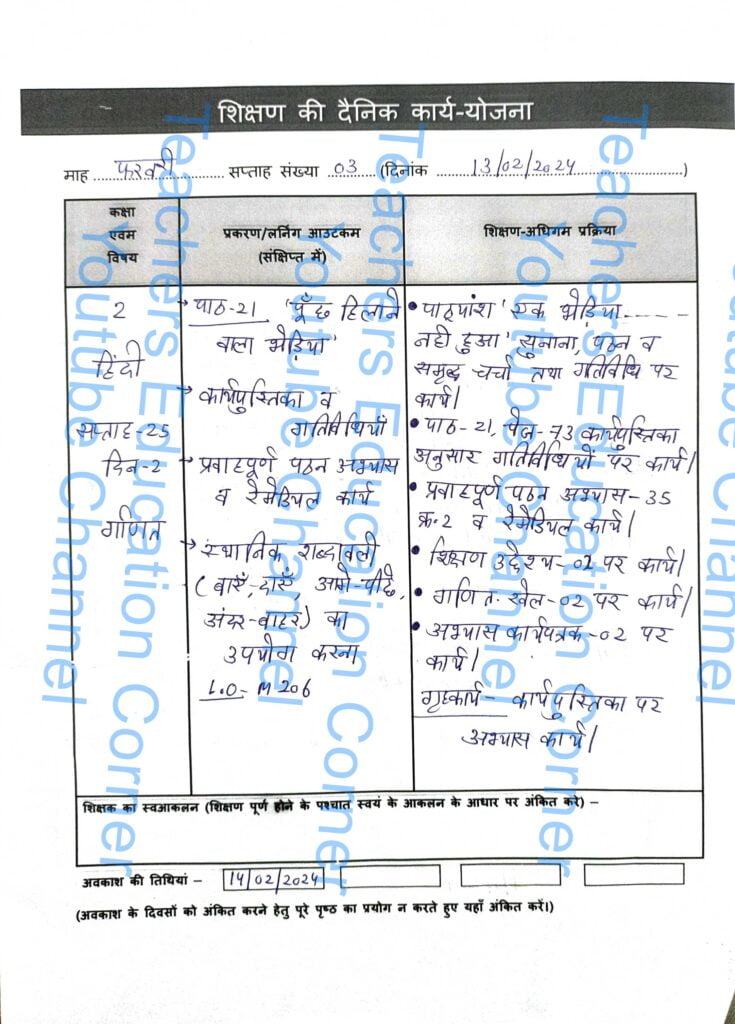 शिक्षण की दैनिक कार्य-योजना
माह फरवरी सप्ताह संख्या 03 (दिनांक 13/02/2024)
कक्षा
एवम
विषय
प्रकरण/लर्निंग आउटकम
(संक्षिप्त में)
शिक्षण-अधिगम प्रक्रिया
2
हिंदी
सप्ताह-25
दिन-2
गणित
→ पाठ-21 'पूँछ हिलाने
वाला भेड़िया'
→ कार्यपुस्तिका व
गतिविधियाँ
→ प्रवाहपूर्ण पठन अभ्यास
व रेमेडियल कार्य
→ स्थानिक शब्दावली
(बाएँ, दाएँ, आगे-पीछे,
अंदर-बाहर) का
उपयोग करना
L.O- M206
• पाठ्यांश 'एक भेड़िया-----
नही हुआ' सुनाना, पठन व
समृद्ध चर्चा तथा गतिविधि पर
कार्य।
• पाठ-21, पेज-73 कार्यपुस्तिका
अनुसार गतिविधियों पर कार्य।
• प्रवाहपूर्ण पठन अभ्यास-35
क्र.2 व रेमेडियल कार्य।
• शिक्षण उद्देश्य-02 पर कार्य।
• गणित खेल-02 पर कार्य।
• अभ्यास कार्यपत्रक-02 पर
कार्य।
गृहकार्य- कार्यपुस्तिका पर
अभ्यास कार्य।
शिक्षक का स्वआकलन (शिक्षण पूर्ण होने के पश्चात स्वयं के आकलन के आधार पर अंकित करे) –
अवकाश की तिथियां – 14/02/2024
(अवकाश के दिवसों को अंकित करने हेतु पूरे पृष्ठ का प्रयोग न करते हुए यहाँ अंकित करें।)
Teachers Education Corner
Youtube Channel
Teachers Education Corner
Youtube Channel
Teachers Education Corner
Youtube Channel